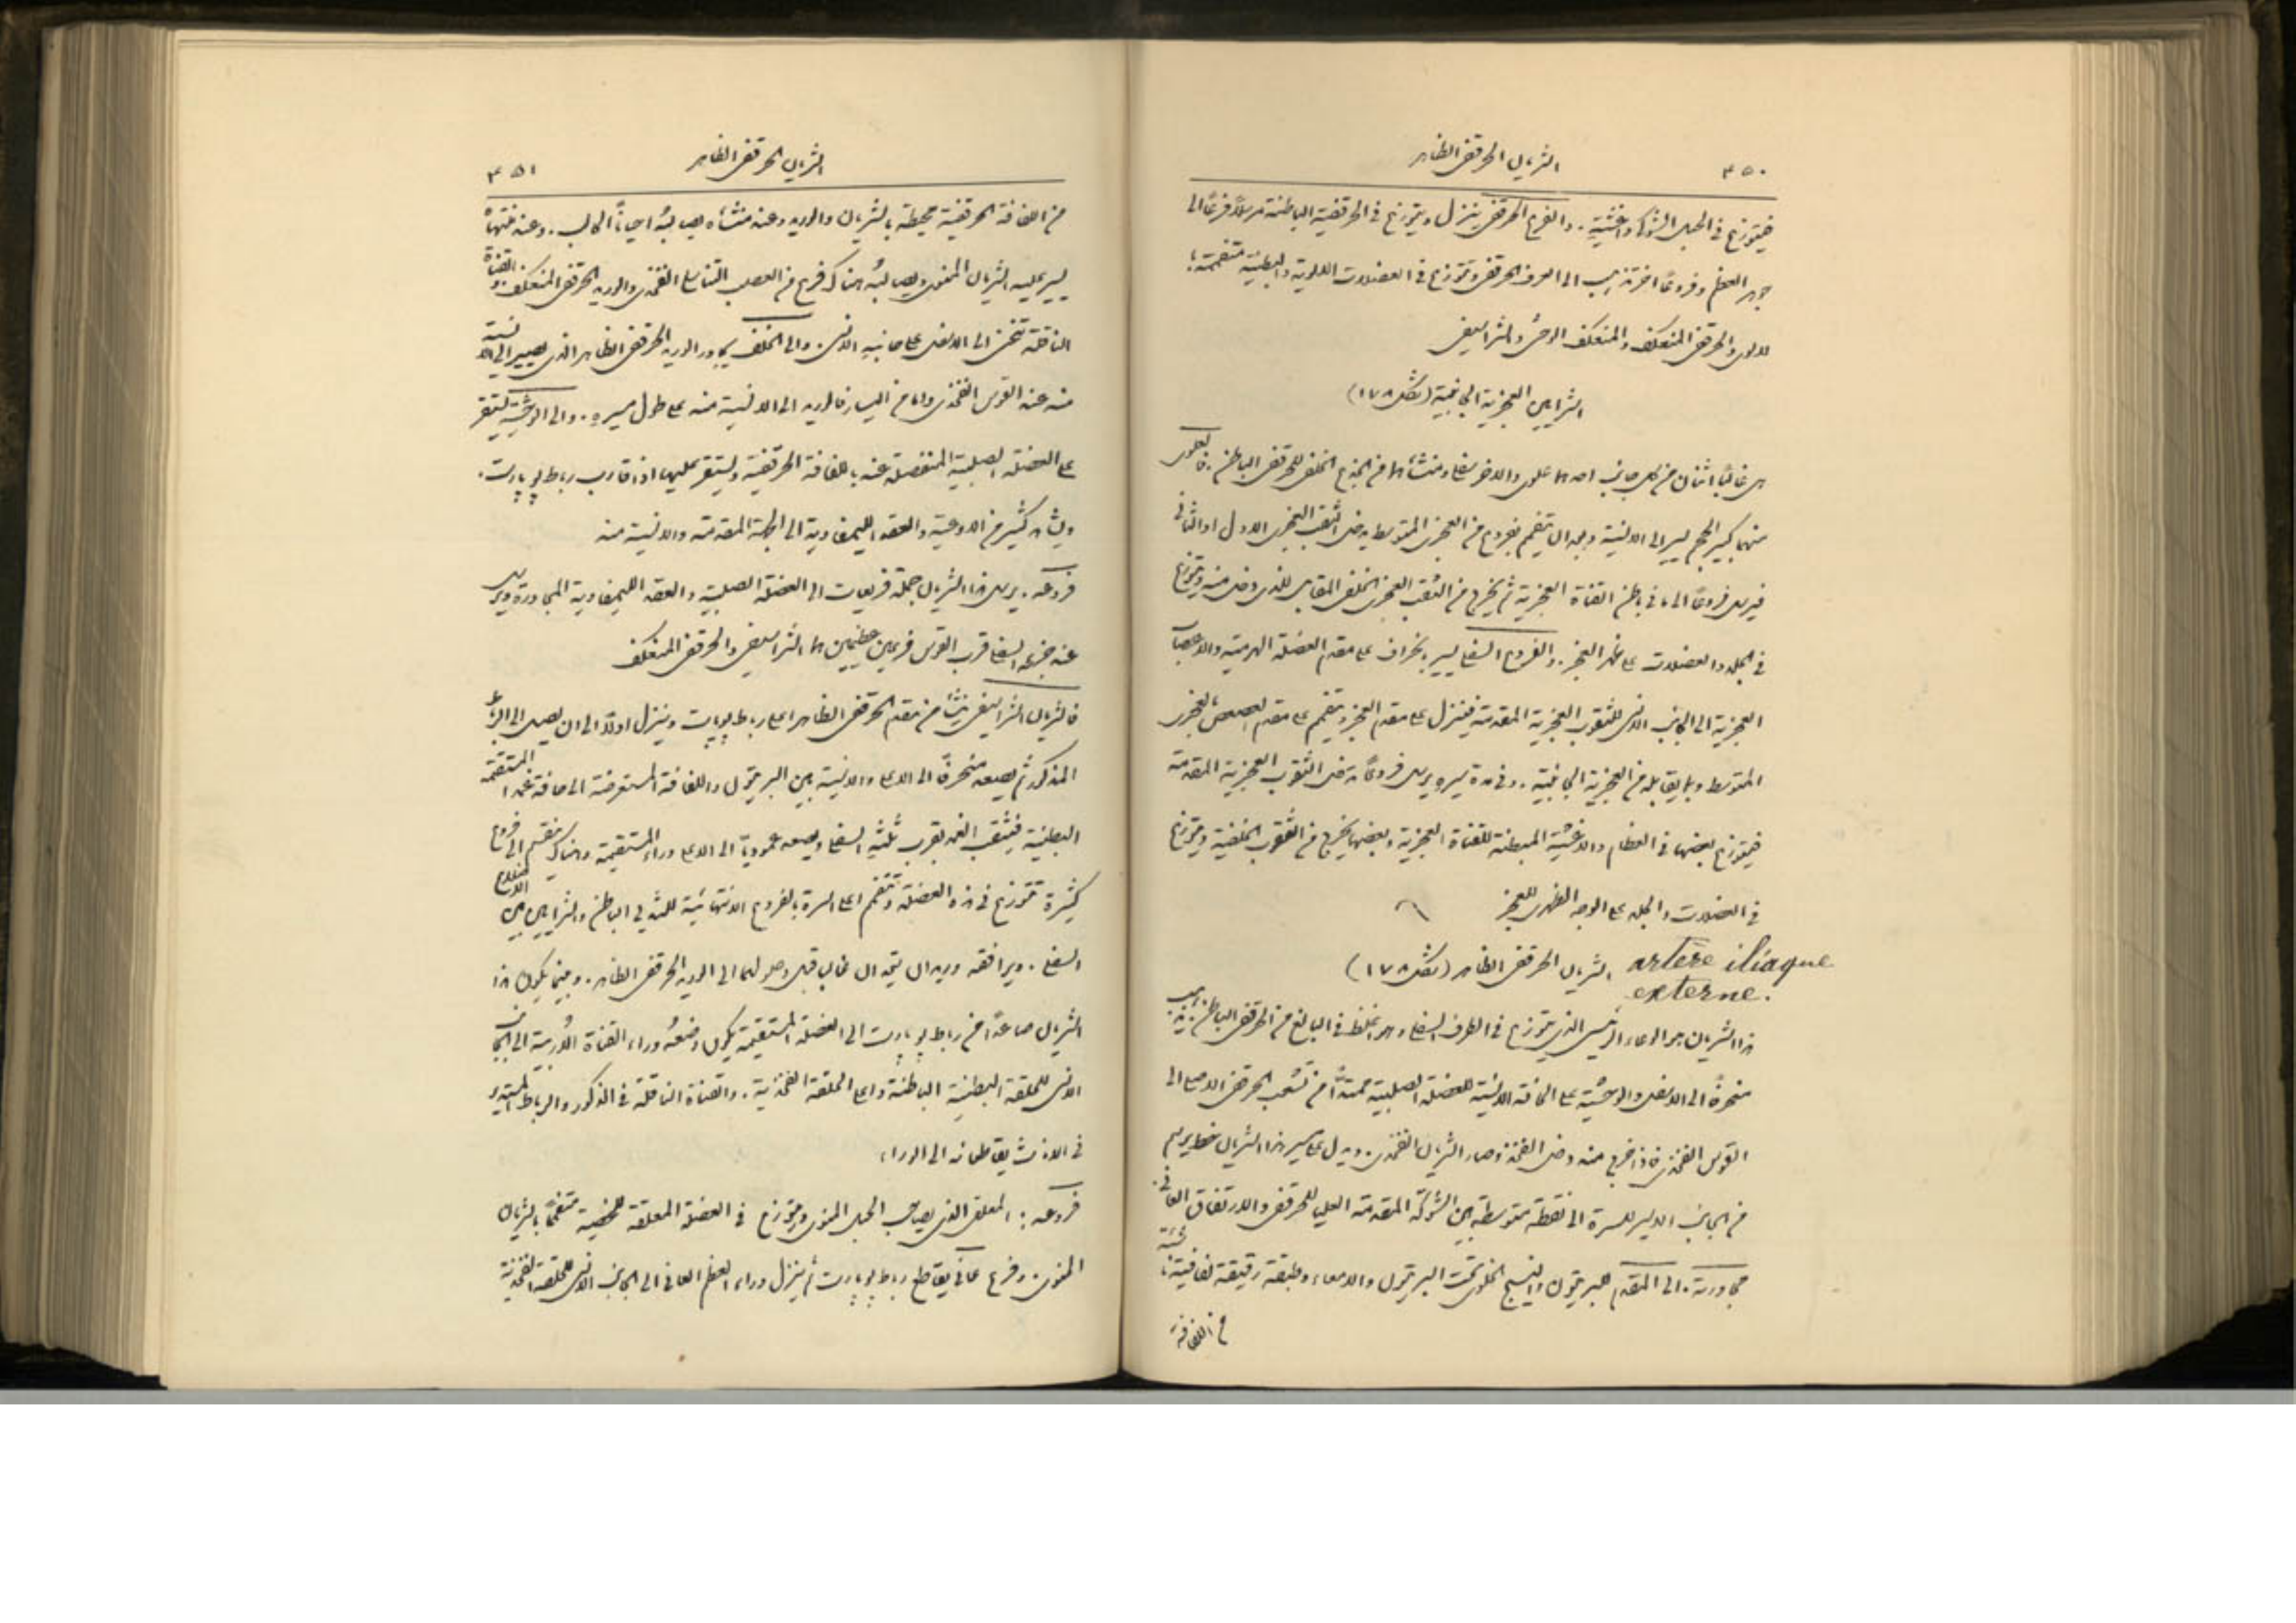 ٤٥٠ الشريان الحرقفي الظاهر
فيتوزع في الحبل الشوكي واغشيته. والفرع الحرقفي ينزل ويتوزع في الحرقفية الباطنة مرسلاً فرعًا الى
جوهر العظم وفروعًا اخر تذهب الى العرف الحرقفي وتتوزع في العضلات الالوية والبطنية متفممة
للالوي والحرقفي المنعكف والمنعكف الوحشي والشراسيفي
الشرايين العجزية الجانبية (شكل ١٧٨)
هي غالبًا اثنان من كل جانب احدهما علوي والاخر سفلي ومنشأهما من الجذع الخلفي للحرقفي الباطن. فالعلوي
منهما كبير الحجم يسير الى الانسية وبعد ان يتفمم بفروع من العجزي المتوسط يدخل الثقب العجزي الاول او الثاني
فيرسل فروعًا الى ما في باطن القناة العجزية ثم يخرج من الثقب العجزي الخلفي المقابل للذي دخل منه ويتوزع
في الجلد والعضلات على ظهر العجز. والفرع السفلي يسير بانحراف على مقدم العضلة الهرمية والاعصاب
العجزية الى الجانب الانسي للثقوب العجزية المقدمة فينزل على مقدم العجز ويتفمم على مقدم العصعص بالعجزي
المتوسط وبما يقابله من العجزية الجانبية. وفي مدة سيره يرسل فروعًا تدخل الثقوب العجزية المقدمة
فيتوزع بعضها في العظام والاغشية المبطنة للقناة العجزية وبعضها يخرج من الثقوب الخلفية ويتوزع
في العضلات والجلد على الوجه الظهري للعجز
الشريان الحرقفي الظاهر (شكل ١٧٨) artère iliaque
externe.
هذا الشريان هو الوعاء الرئيس الذي يتوزع في الطرف السفلي وهو اغلظ في البالغ من الحرقفي الباطن. يذهب
منحرفًا الى الاسفل والوحشية على الحافة الانسية للعضلة الصلبية ممتدًا من تشعب الحرقفي الاصلي الى
القوس الفخذي فاذا خرج منه دخل الفخذ وصار الشريان الفخذي. ويدل على سير هذا الشريان خط يرسم
من الجانب الايسر للسرة الى نقطة متوسطة بين الشوكة المقدمة العليا للحرقفي والارتفاق العاني.
مجاورته. الى المقدم البريتون والنسيج الخلوي تحت البريتون والامعاء وطبقة رقيقة لفافية ناشئة
من اللفافة
الشريان الحرقفي الظاهر ٤٥١
من اللفافة الحرقفية محيطة بالشريان والوريد وعند منشأه يصالبه احيانًا الحالب. وعند منتهاه
يسير عليه الشريان المنوي ويصالبه هناك فرع من العصب التناسلي الفخذي والوريد الحرقفي المنعكف والقناة
الناقلة تنحني الى الاسفل على جانبه الانسي. والى الخلف يجاور الوريد الحرقفي الظاهر الذي يصير الى الانسية
منه عند القوس الفخذي واما من اليسار فالوريد الى الانسية منه على طول مسيره. والى الوحشية يستقر
على العضلة الصلبية المنفصلة عنه باللفافة الحرقفية ويستقر عليها اذا قارب رباط پوپارت.
ويشاهد كثير من الاوعية والعقد الليمفاوية الى الجهة المقدمة والانسية منه
فروعه. يرسل هذا الشريان جملة فريعات الى العضلة الصلبية والعقد الليمفاوية المجاورة ويرسل
عند جزءه السفلي قرب القوس فرعين عظيمين هما الشراسيفي والحرقفي المنعكف
فالشريان الشراسيفي ينشأ من مقدم الحرقفي الظاهر اعلى رباط پوپارت وينزل اولاً الى ان يصل الى الرباط
المذكور ثم يصعد منحرفًا الى الاعلى والانسية بين البريتون واللفافة المستعرضة الى حافة غمد المستقيمة
البطنية فيثقب الغمد بقرب ثلثيه السفلى ويصعد عموديًا الى الاعلى وراء المستقيمة وهناك ينقسم الى فروع
كثيرة تتوزع في هذه العضلة وتتفمم اعلى السرة بالفروع الانتهائية للثديي الباطن والشرايين بين الاضلاع
السفلى. ويرافقه وريدان يتحدان غالبًا قبل وصولهما الى الوريد الحرقفي الظاهر. وحينما يكون هذا
الشريان صاعدًا من رباط پوپارت الى العضلة المستقيمة يكون وضعه وراء القناة الاُربية الى الجانب
الانسي للحلقة البطنية الباطنة واعلى الحلقة الفخذية. والقناة الناقلة في الذكور والرباط المستدير
في الاناث يقاطعانه الى الوراء
فروعه: المعلق الذي يصاحب الحبل المنوي ويتوزع في العضلة المعلقة للخصية متفممًا بالشريان
المنوي. وفرع عاني يقاطع رباط پوپارت ثم ينزل وراء العظم العاني الى الجانب الانسي للحلقة الفخذية